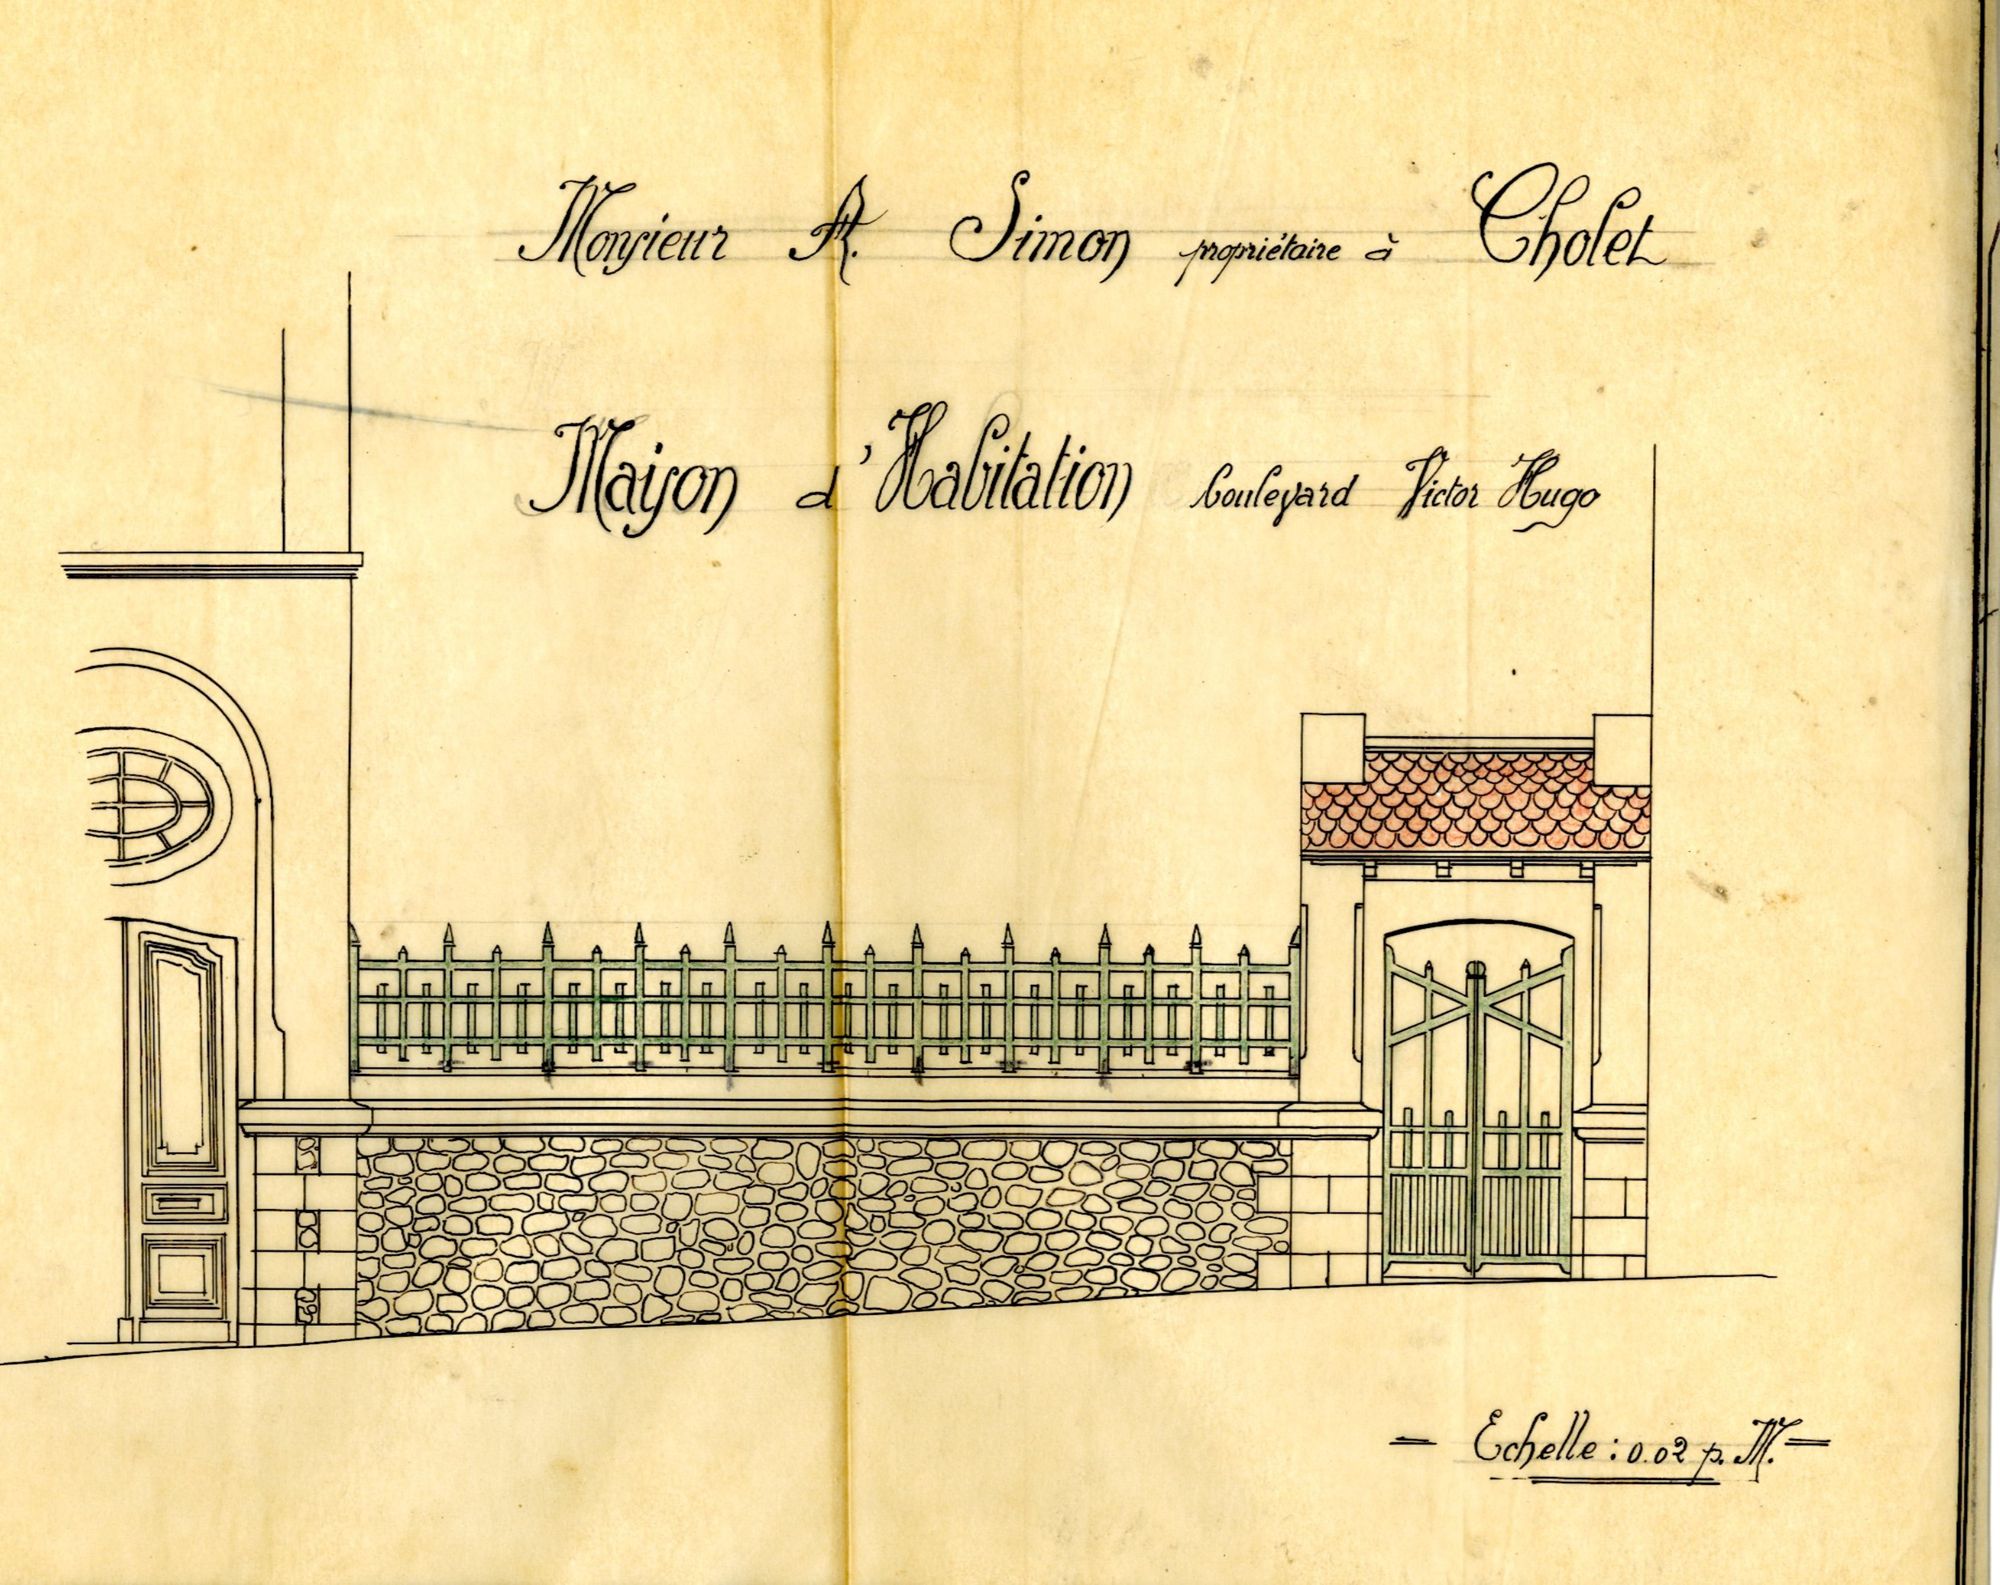 Monsieur A. Simon propriétaire à Cholet
Maison d'Habitation boulevard Victor Hugo
Echelle : 0.02 p. M.